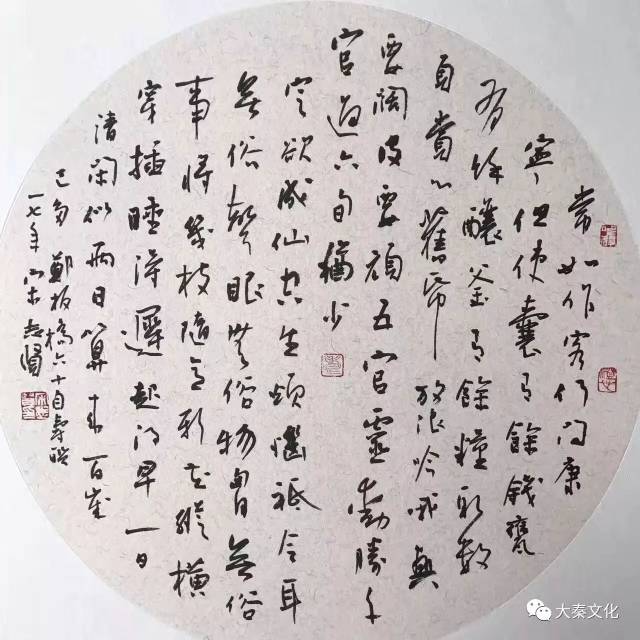 常如作客何问康
寧但使囊有餘錢甕
有余釀釜有餘糧取數
頁賞心舊帋放浪吟哦興
要闊皮要頑五官靈動勝千
官過六旬猶少
定欲成仙空生煩惱祇令耳
無俗聲眼無俗物胷無俗
事將幾枝隨意新花縱橫
穿插睡得遲起得早一日
清閑似兩日算來百歲
已多 鄭板橋六十自壽聯
一七年
大秦文化